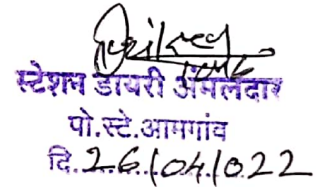 स्टेशन डायरी अंमलदार
पो.स्टे.आमगांव
दि. 26/04/022